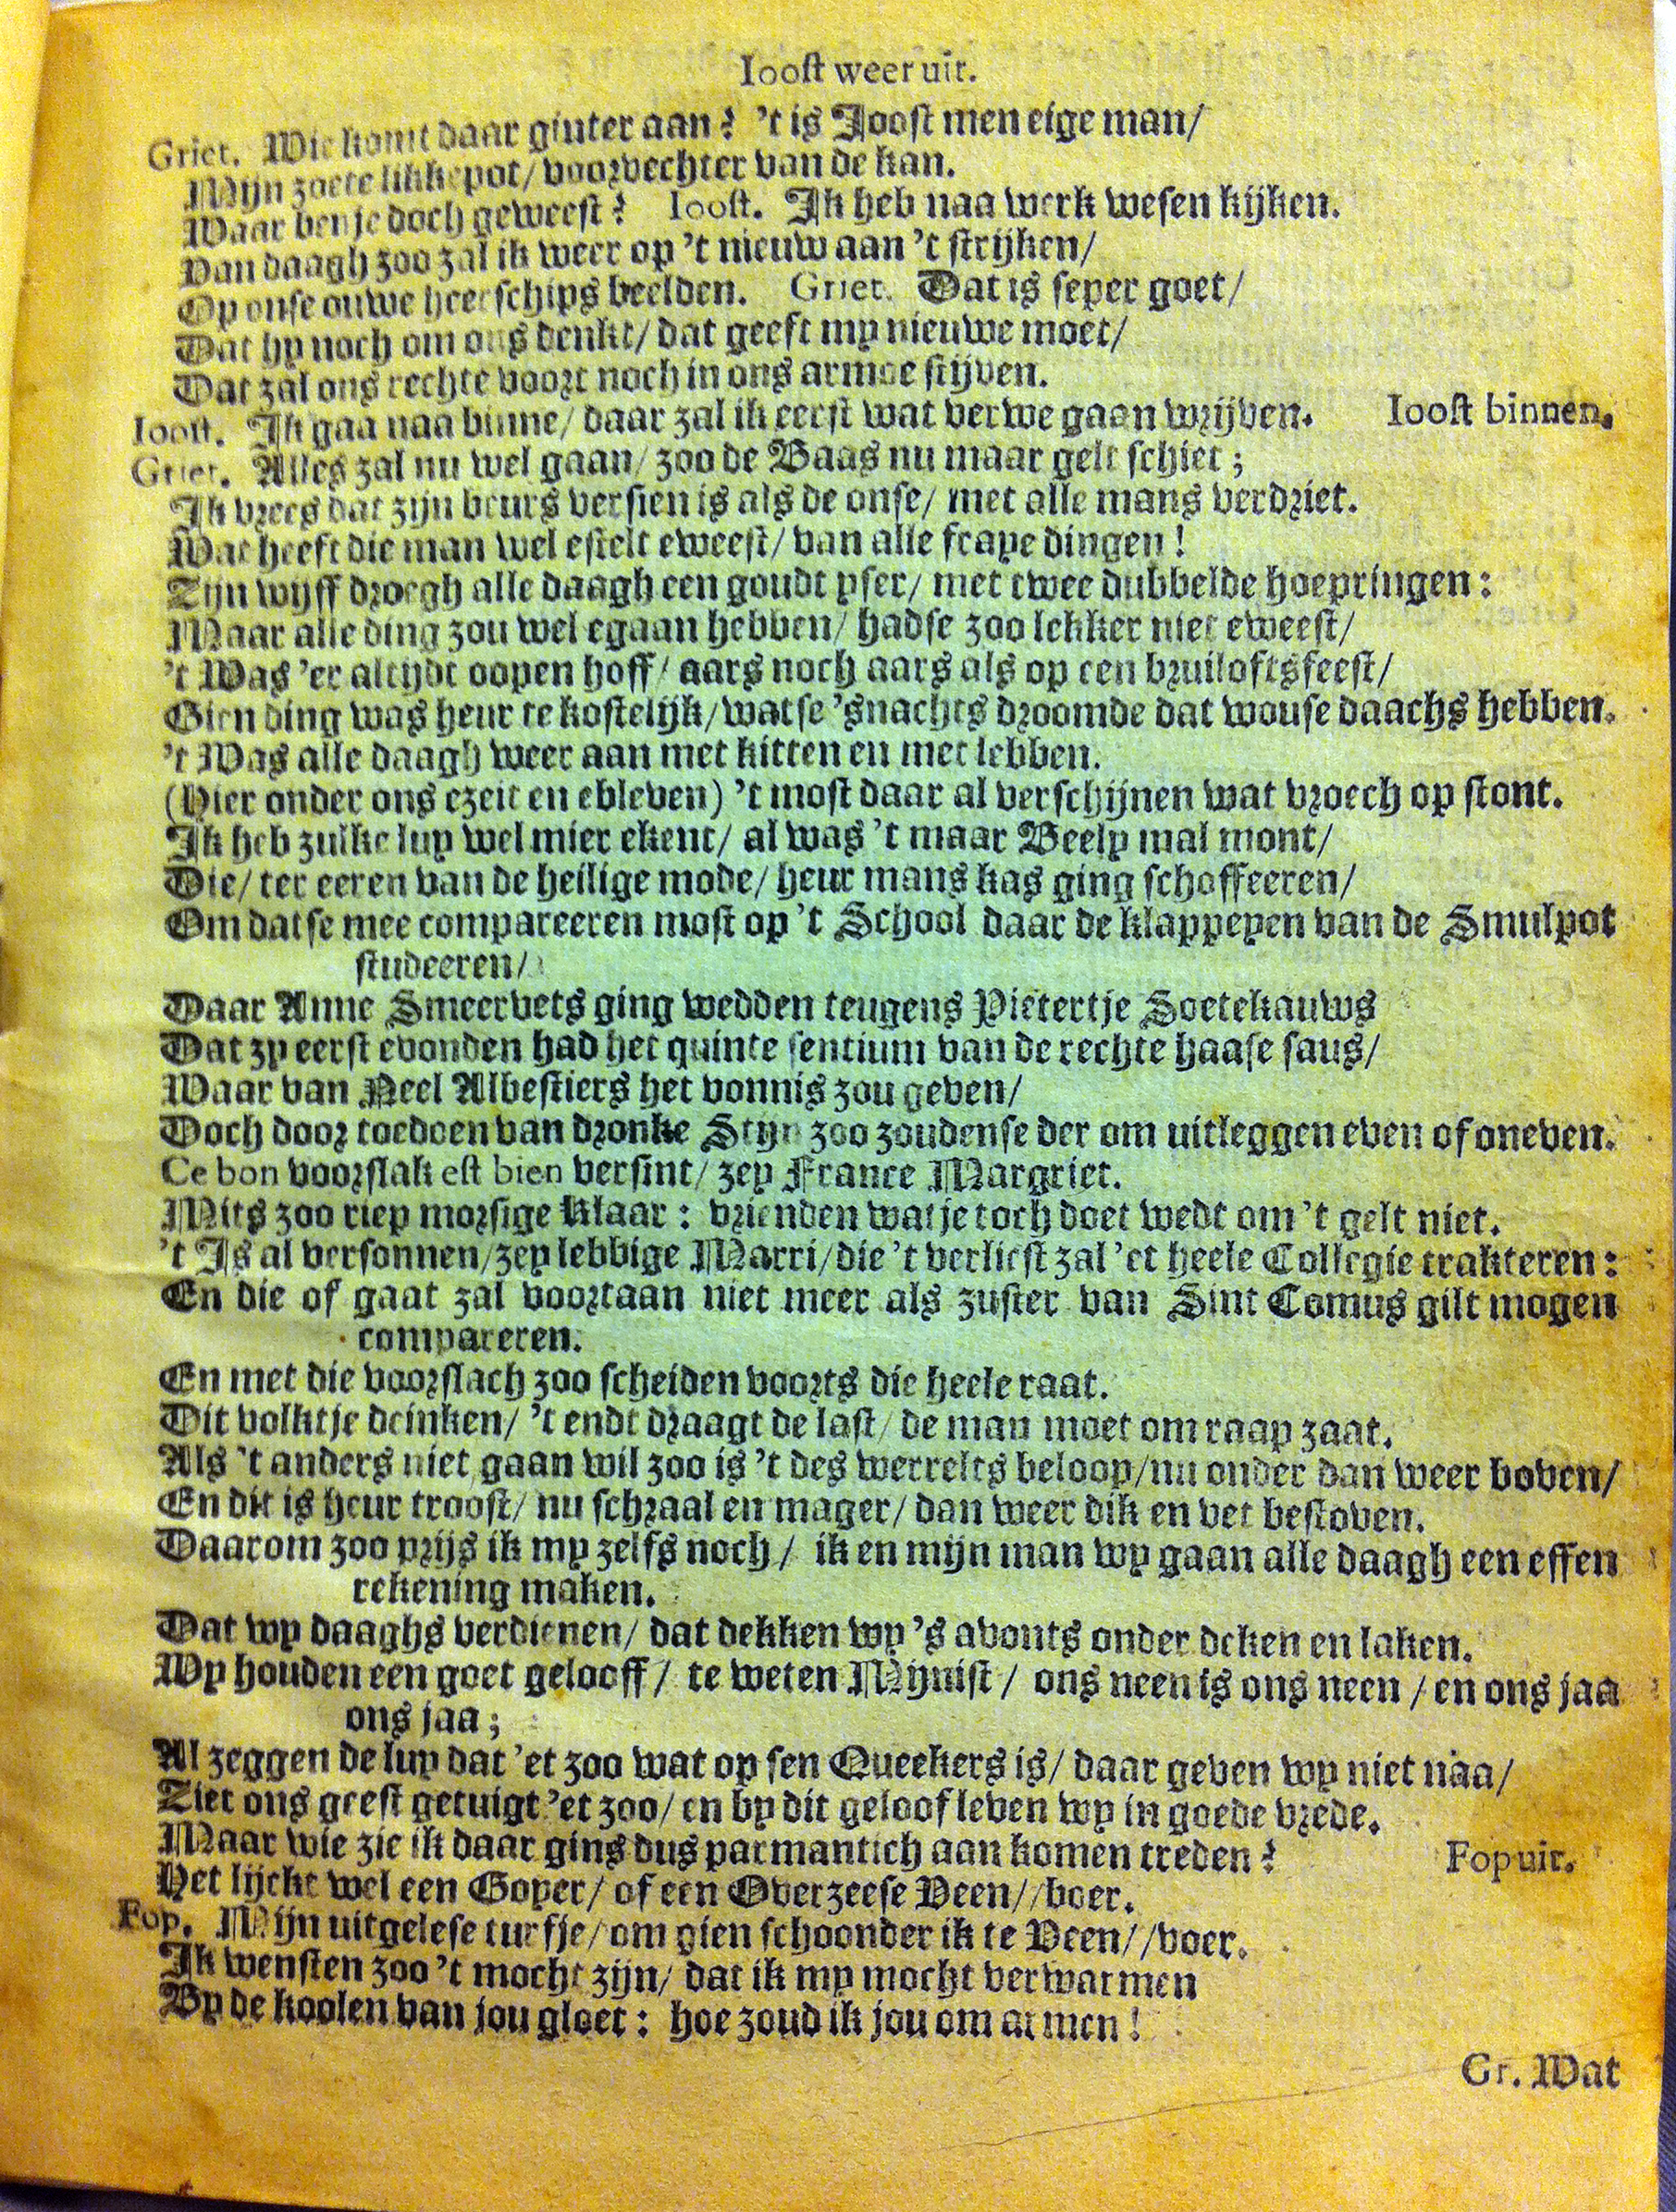 Ioost weer uit.
Griet. Wie komt daar ginter aan? 't is Joost men eige man/
Mijn zoete likkepot/ voorvechter van de kan.
Waar ben je doch geweest? Ioost. Ik heb naa werk wesen kijken.
Van daagh zoo zal ik weer op 't nieuw aan 't strijken/
Op onse ouwe heerschips beelden. Griet. Dat is seper goet/
Dat hy noch om ons denkt/ dat geeft my nieuwe moet/
Dat zal ons rechte voort noch in ons armoe stijven.
Ioost. Ik gaa naa binne/ daar zal ik eerst wat verwe gaan wrijven. Ioost binnen.
Griet. Alles zal nu wel gaan/ zoo de Baas nu maar gelt schiet;
Ik vrees dat zijn beurs versien is als de onse/ met alle mans verdriet.
Wat heeft die man wel estelt eweest/ van alle fraye dingen!
Zijn wyff droegh alle daagh een goudt yser/ met twee dubbelde hoepringen:
Maar alle ding zou wel egaan hebben/ hadse zoo lekker niet eweest/
't Was 'er altijdt oopen hoff/ aars noch aars als op een bruiloftsfeest/
Gien ding was heur te kostelijk/ watse 'snachts droomde dat wouse daachs hebben.
't Was alle daagh weer aan met kitten en met lebben.
(Hier onder ons ezeit en ebleven) 't most daar al verschijnen wat vroech op stont.
Ik heb zulke luy wel mier ekent/ al was 't maar Beely mal mont/
Die/ ter eeren van de heilige mode/ heur mans kas ging schoffeeren/
Om datse mee compareeren most op 't School daar de klappeyen van de Smulpot
studeeren/
Daar Anne Smeervets ging wedden teugens Pietertje Soetekauws
Dat zy eerst evonden had het quinte sentium van de rechte haase saus/
Waar van Neel Albestiers het vonnis zou geven/
Doch door toedoen van dronke Stijn zoo zoudense der om uitleggen even of oneven.
Ce bon voorslak est bien versint/ zey France Margriet.
Mits zoo riep morsige Klaar: vrienden wat je toch doet wedt om 't gelt niet.
't Is al versonnen/ zey lebbige Marri/ die 't verliest zal 'et heele Collegie trakteren:
En die of gaat zal voortaan niet meer als zuster van Sint Comus gilt mogen
compareren.
En met die voorslach zoo scheiden voorts die heele raat.
Dit volktje drinken/ 't endt draagt de last/ de man moet om raap zaat.
Als 't anders niet gaan wil zoo is 't des werrelts beloop/ nu onder dan weer boven/
En dit is heur troost/ nu schraal en mager/ dan weer dik en vet bestoven.
Daarom zoo prijs ik my zelfs noch/ ik en mijn man wy gaan alle daagh een effen
rekening maken.
Dat wy daaghs verdienen/ dat dekken wy 's avonts onder deken en laken.
Wy houden een goet gelooff/ te weten Mijnist/ ons neen is ons neen/ en ons jaa
ons jaa;
Al zeggen de luy dat 'et zoo wat op sen Queekers is/ daar geven wy niet naa/
Ziet ons geest getuigt 'et zoo/ en by dit geloof leven wy in goede vrede.
Maar wie zie ik daar gins dus parmantich aan komen treden? Fop uit.
Het lijckt wel een Goyer/ of een Overzeese Veen//boer.
Fop. Mijn uitgelese turfje/ om gien schoonder ik te Veen//voer.
Ik wensten zoo 't mocht zijn/ dat ik my mocht verwarmen
By de koolen van jou gloet: hoe zoud ik jou om armen!
Gr. Wat